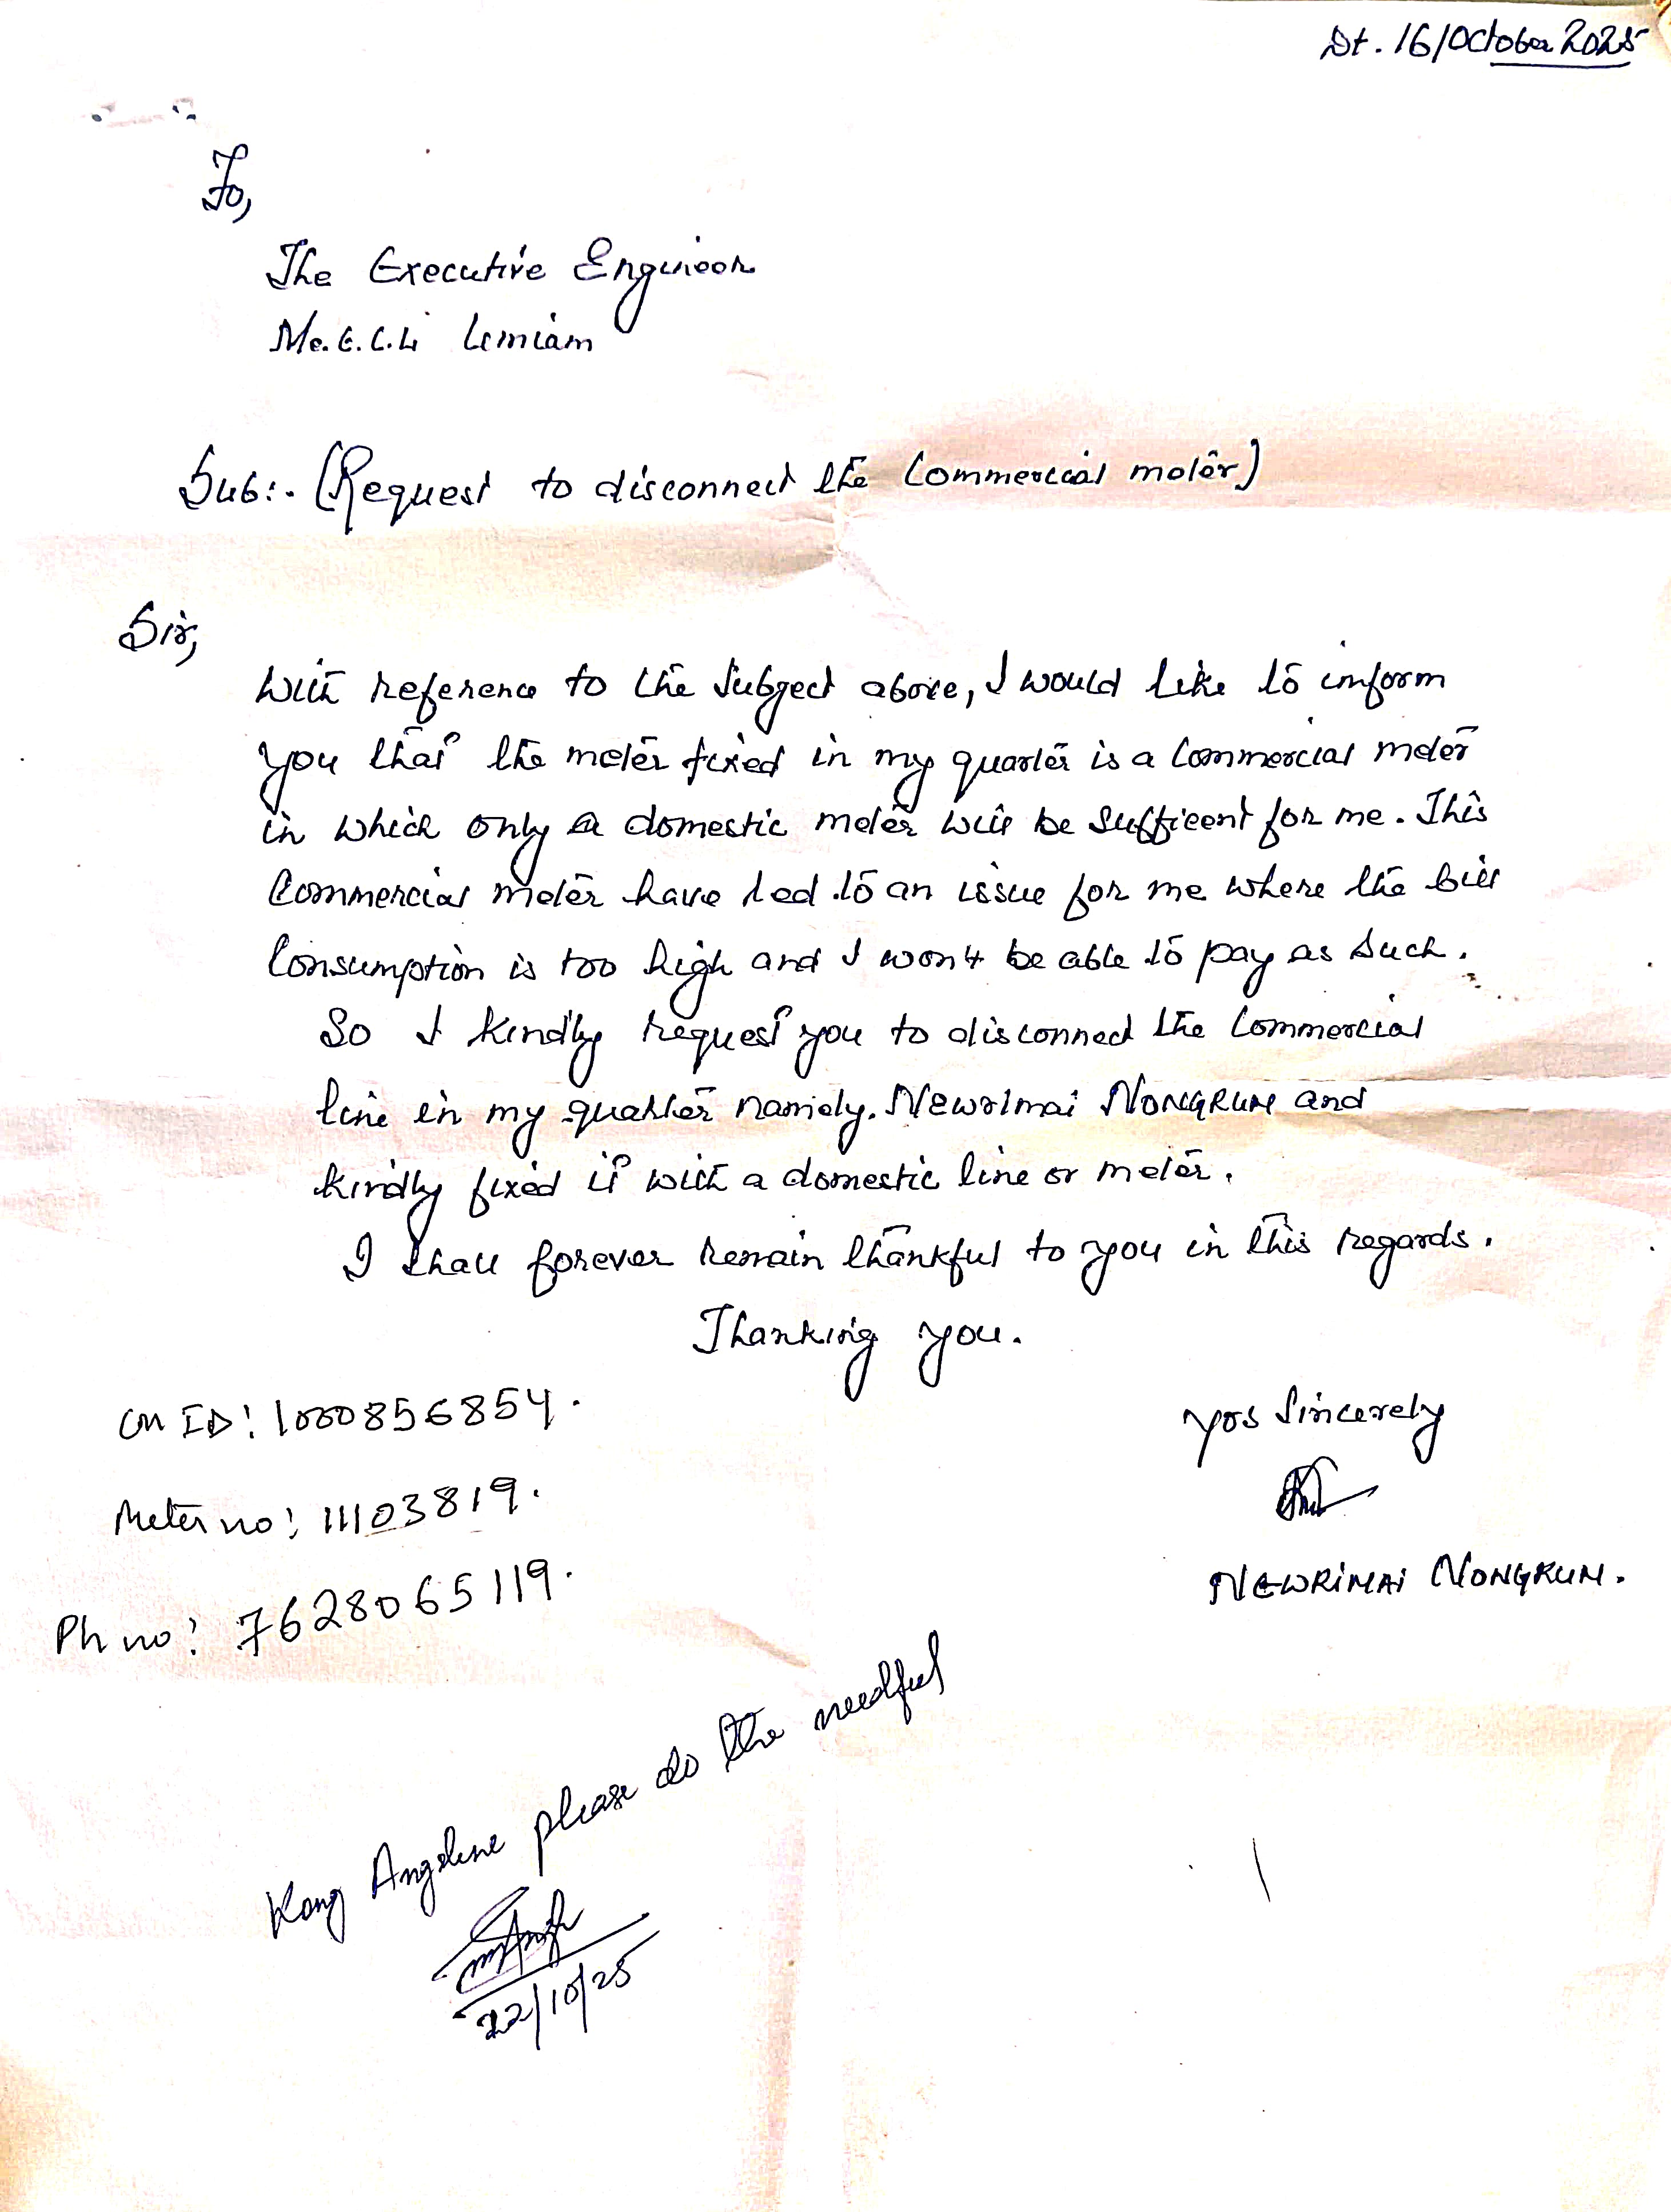 Dt. 16/October 2025
To,
The Executive Engineer
Me.E.C.L Umiam
Sub:- (Request to disconnect the Commercial meter)
Sir,
With reference to the Subject above, I would like to inform
you that the meter fixed in my quarter is a Commercial meter
in which only a domestic meter will be Sufficent for me. This
Commercial meter have led to an issue for me where the bill
Consumption is too high and I won't be able to pay as such.
So I kindly request you to disconnect the Commercial
line in my quarter namely. Newrimai NONGRUM and
kindly fixed it with a domestic line or meter.
I shall forever remain thankful to you in this regards.
Thanking you.
CM ID: 1000856854.
Meter no: 11103819.
Ph no: 7628065119.
Yos Sincerely
NEWRIMAI NONGRUM.
Kong Angeline please do the needful
22/10/25